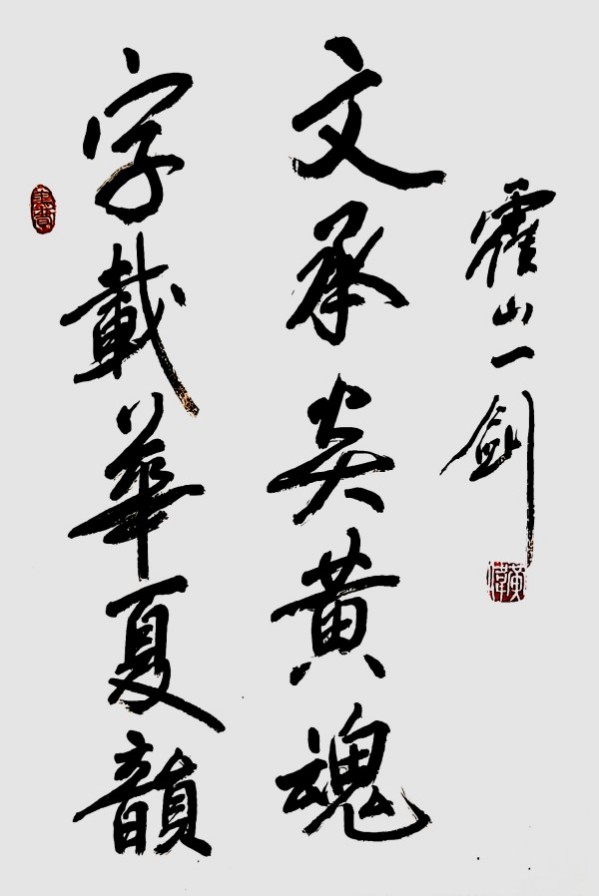 字載華夏韻
文承炎黄魂
霍山一剑